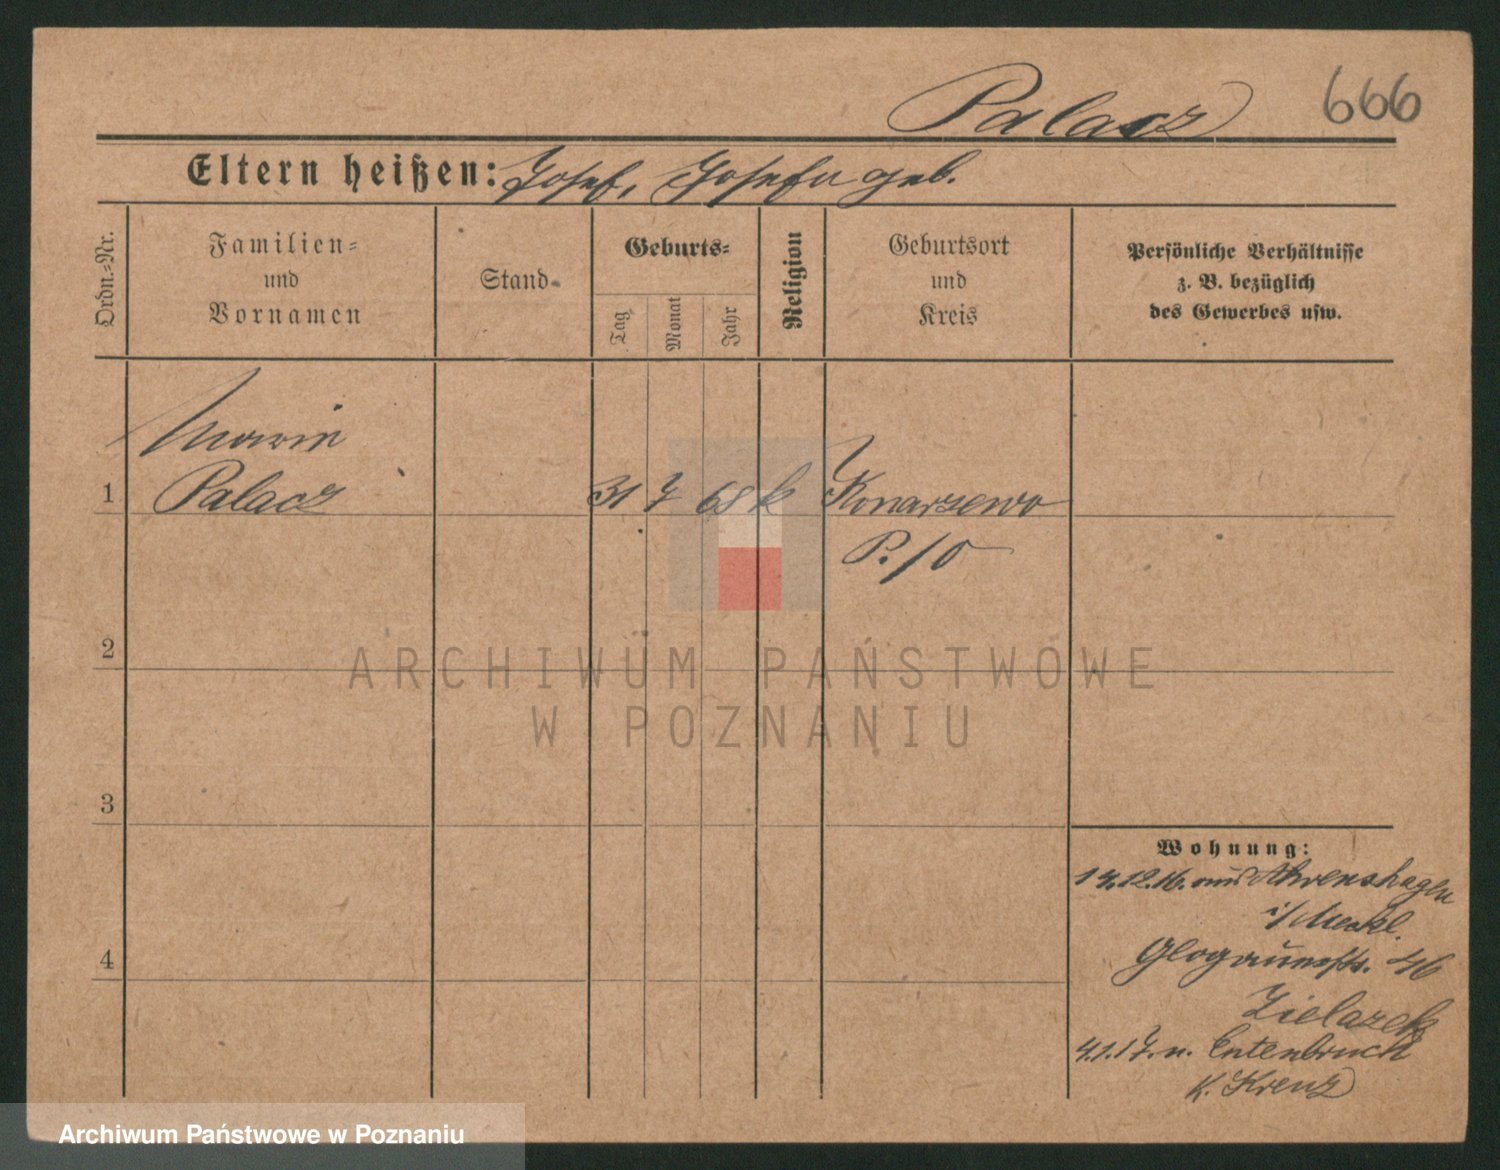 Palacz 666
Eltern heißen: Josef, Josefa geb.
Ordn.=Nr.
Familien=
und
Vornamen
Stand
Geburts=
Tag
Monat
Jahr
Religion
Geburtsort
und
Kreis
Persönliche Verhältnisse
z. B. bezüglich
des Gewerbes usw.
Marie
1 Palacz 31 7 68 k Konarzewo
P./O
2
ARCHIWUM PAŃSTWOWE
W POZNANIU
3
Wohnung:
14.12.16. aus Ahrenshagen
i/Meckl.
4
Glogauerstr. 46
Zielazek
4.1.17. n. Entenbruch
K. Krenz
Archiwum Państwowe w Poznaniu